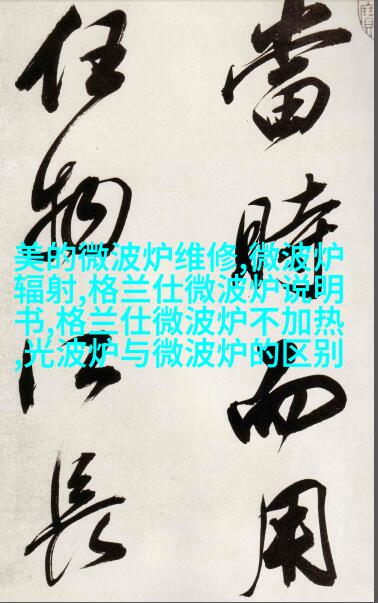 當時而用
任物長
美的微波炉维修,微波炉
辐射,格兰仕微波炉说明
书,格兰仕微波炉不加热
,光波炉与微波炉的区别